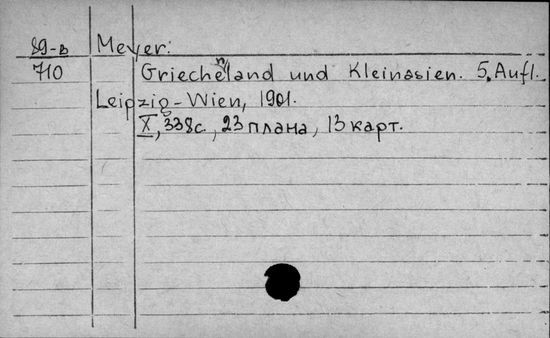 89-в Meyer:
710 Griechenland und Kleinasien. 5. Aufl.
Leipzig-Wien, 1901.
X, 338с., 23 плана, 13 карт.